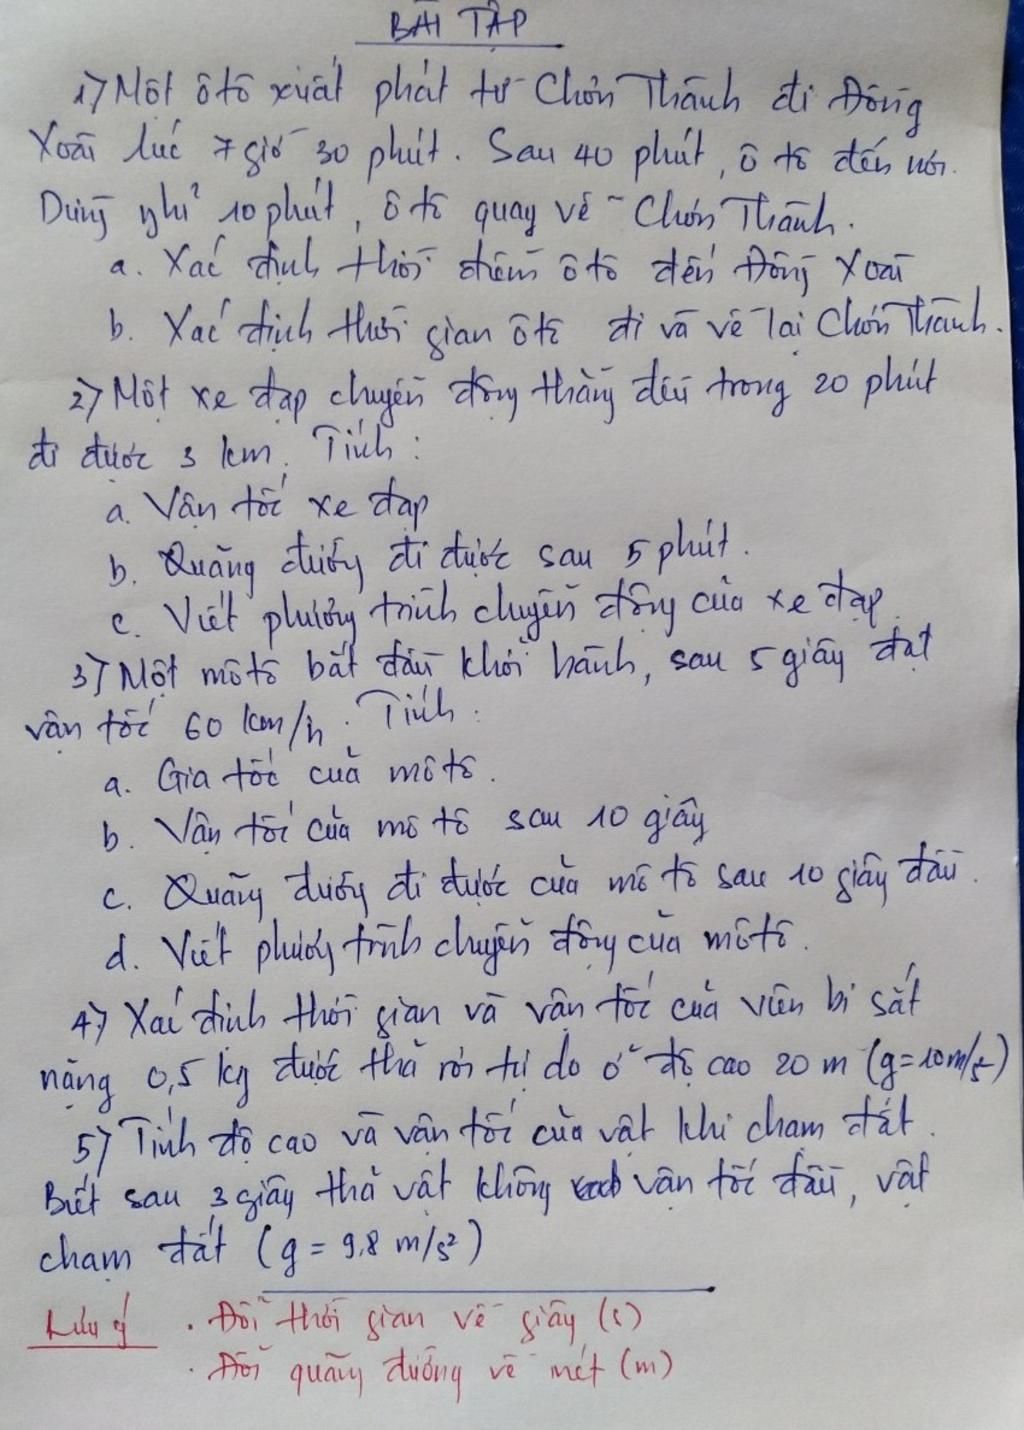 BÀI TẬP
1) Một ôtô xuất phát từ Chơn Thành đi Đồng
Xoài lúc 7 giờ 30 phút. Sau 40 phút, ô tô đến nơi.
Dừng nghỉ 10 phút, ô tô quay về Chơn Thành.
a. Xác định thời điểm ô tô đến Đồng Xoài
b. Xác định thời gian ô tô đi và về lại Chơn Thành.
2) Một xe đạp chuyển động thẳng đều trong 20 phút
đi được 3 km. Tính:
a. Vận tốc xe đạp
b. Quãng đường đi được sau 5 phút.
c. Viết phương trình chuyển động của xe đạp.
3) Một môtô bắt đầu khởi hành, sau 5 giây đạt
vận tốc 60 km/h. Tính:
a. Gia tốc của môtô.
b. Vận tốc của mô tô sau 10 giây
c. Quãng đường đi được của mô tô sau 10 giây đầu.
d. Viết phương trình chuyển động của môtô.
4) Xác định thời gian và vận tốc của viên bi sắt
nặng 0,5 kg được thả rơi tự do ở độ cao 20 m (g=10m/s²)
5) Tính độ cao và vận tốc của vật khi chạm đất.
Biết sau 3 giây thả vật không vận tốc đầu, vật
chạm đất (g = 9,8 m/s²)
Lưu ý . Đổi thời gian về giây (s)
. Đổi quãng đường về mét (m)